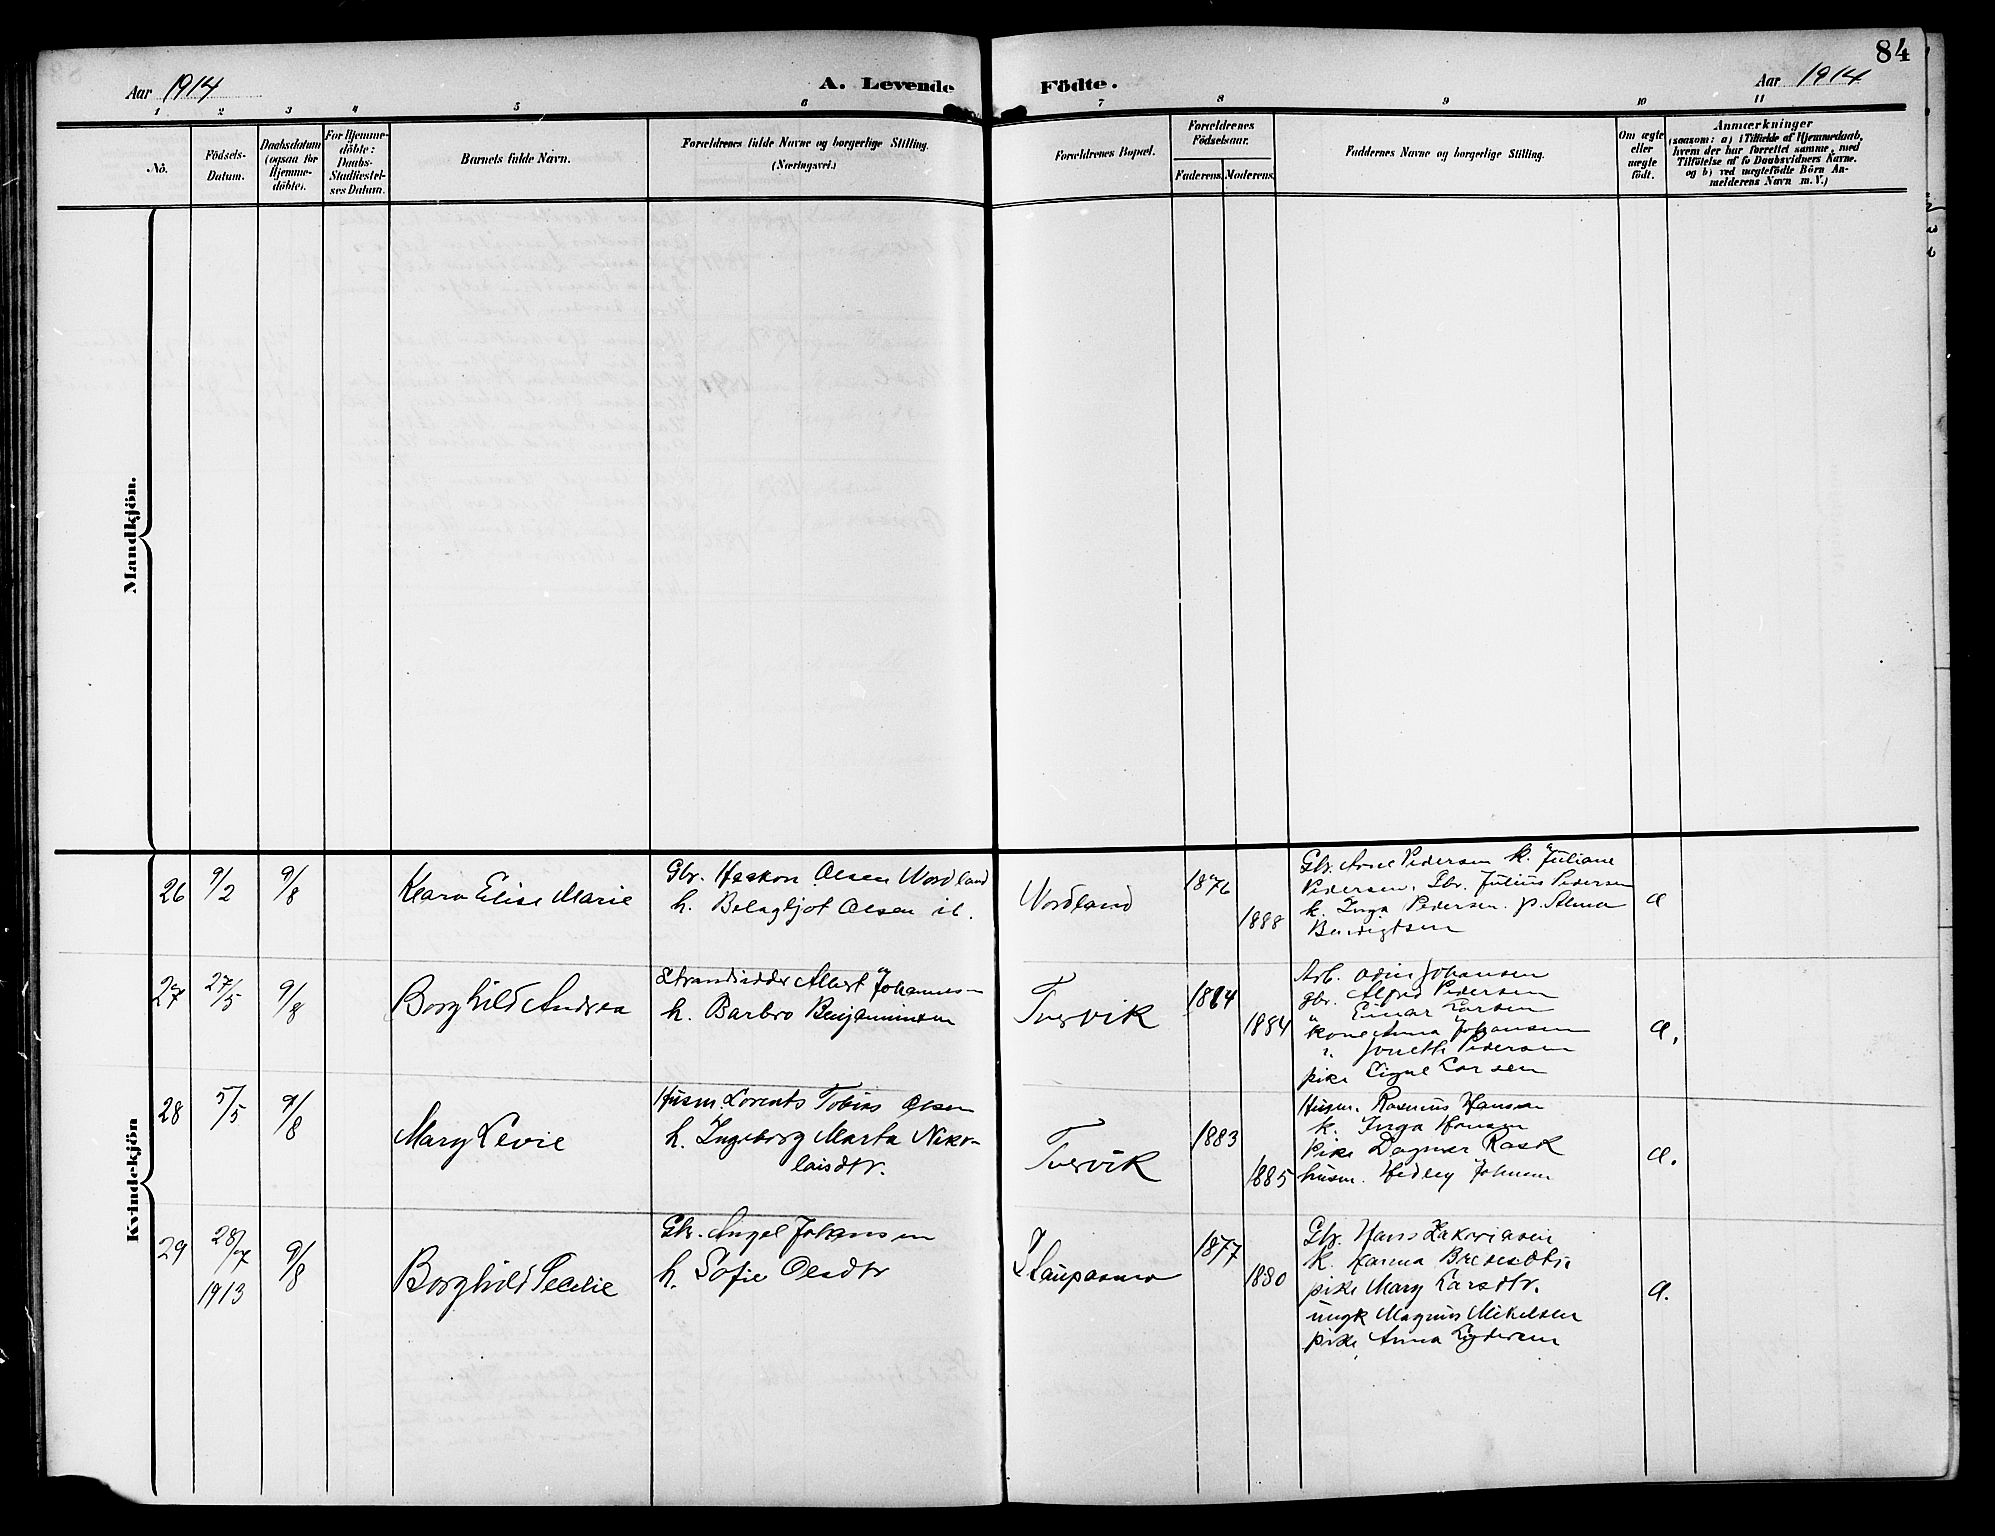 84
Aar 1914
A. Levende Födte.
Aar 1914
1 2 3 4 5 6 7 8 9 10 11
No.
Födsels-Datum.
Daabsdatum (ogsaa for Hjemme-döbte).
For Hjemme-döbte: Daabs-Stadfæstel-ses Datum.
Barnets fulde Navn.
Forældrenes fulde Navne og borgerlige Stilling.
(Næringsvei.)
Forældrenes Bopæl.
Forældrenes Födselsaar.
Faderens. Moderens.
Faddernes Navne og borgerlige Stilling.
Om ægte eller uægte födt.
Anmærkninger
(saasom: a) i Tilfælde af Hjemmedaab,
hvem der har forrettet samme, med
Tilföielse af to Daabsvidners Navne.
og b) ved uægtefödte Börn An-
melderens Navn m. V.)
Mandkjön.
Kvindekjön
26 9/2 9/8
Klara Elise Marie
Gbr. Haskon Olsen Nordland
h. Bolagljot Olsen ib.
Nordland
1876
1888
Gbr. Arne Pedersen k. Juliane
Pedersen, Gbr. Julius Pedersen
k. Inga Pedersen. p. Alma
Benedigtsen
a
27 27/5 9/8
Borghild Andrea
Strandsidder Albert Johannes-
h. Barbro Benjaminsen
Tvervik
1884
1884
Arb. Odin Johansen
gbr. Alfred Pedersen
" Einar Larsen
kone Anna Johansen
" Jonette Pedersen
pike Signe Larsen
a.
28 5/5 9/8
Mary Levie
Husm. Lorents Tobias Olsen
h. Ingeborg Marta Niko-
laisdtr.
Tvervik
1883
1885
Husm. Rasmus Hansen
k. Inga Hansen
Pike Dagmar Rask
husm. Hedley Johnsen
a.
29 28/ 1913 9/8
Borghild Secilie
Gbr. Angel Johansen
h. Sofie Olsdtr
1877
1880
Gbr. Hans Zakariasen
k. Hanna
pike Mary Larsdtr.
ungk Magnus Mikelsen
pike Anna Lydersen
a.